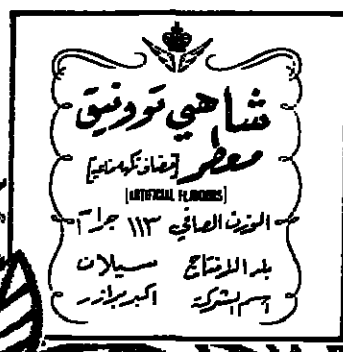 شاهي توونيق
معطر [مضاف نكهة صناعية]
[ARTIFICIAL FLAVOURS]
الوزن الصافي ١١٣ جرام
بلد الانتاج سيلان
اسم الشركة اكبر برازرز